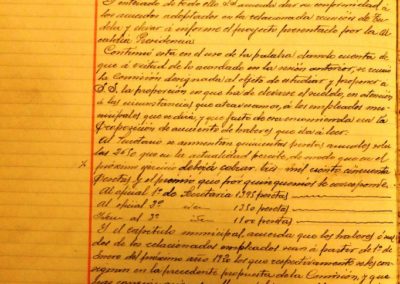 Enterado de todo ello S.S. acuerda dar su conformidad á
los acuerdos adoptados en la relacionada reunion de Tu-
dela y elevar á informe el proyecto presentado por la Al-
caldia Presidencia.
Continuó esta en el uso de la palabra dando cuenta de
que á virtud de lo acordado en la sesión anterior, se reunió
la Comisión designada al objeto de estudiar y proponer a
S.S. la proporción en que ha de elevarse el sueldo, en atención
á las circunstancias que atravesamos, á los empleados mu-
nicipales que se dirá y que justo de
proposición de aumento de haberes que da á leer:
Al Secretario se aumentan quinientas pesetas anuales sobre
las 2650 que en la actualidad percibe, de modo que en el
próximo deberá cobrar tres mil ciento cincuenta
Pesetas y el premio que por quinquenios le corresponde.
Al oficial 1º de Secretaria 1395 pesetas
Al oficial 2º id 1350 pesetas
Idem al 3º id 1100 pesetas
Y el capitulo municipal, acuerda que los haberes ó suel-
dos de los relacionados empleados sean á partir de 1º de
Enero del próximo año 1920 los que respectivamente se les con-
signan en la precedente propuesta de la Comisión, y que